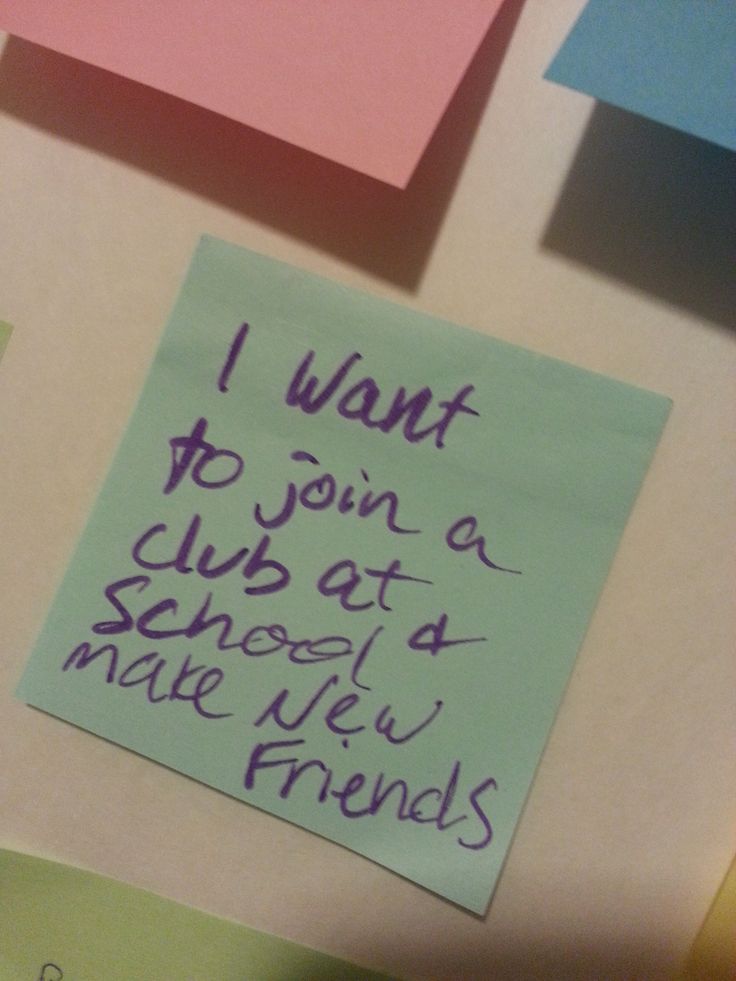 I want
to join a
club at
School &
make New
Friends